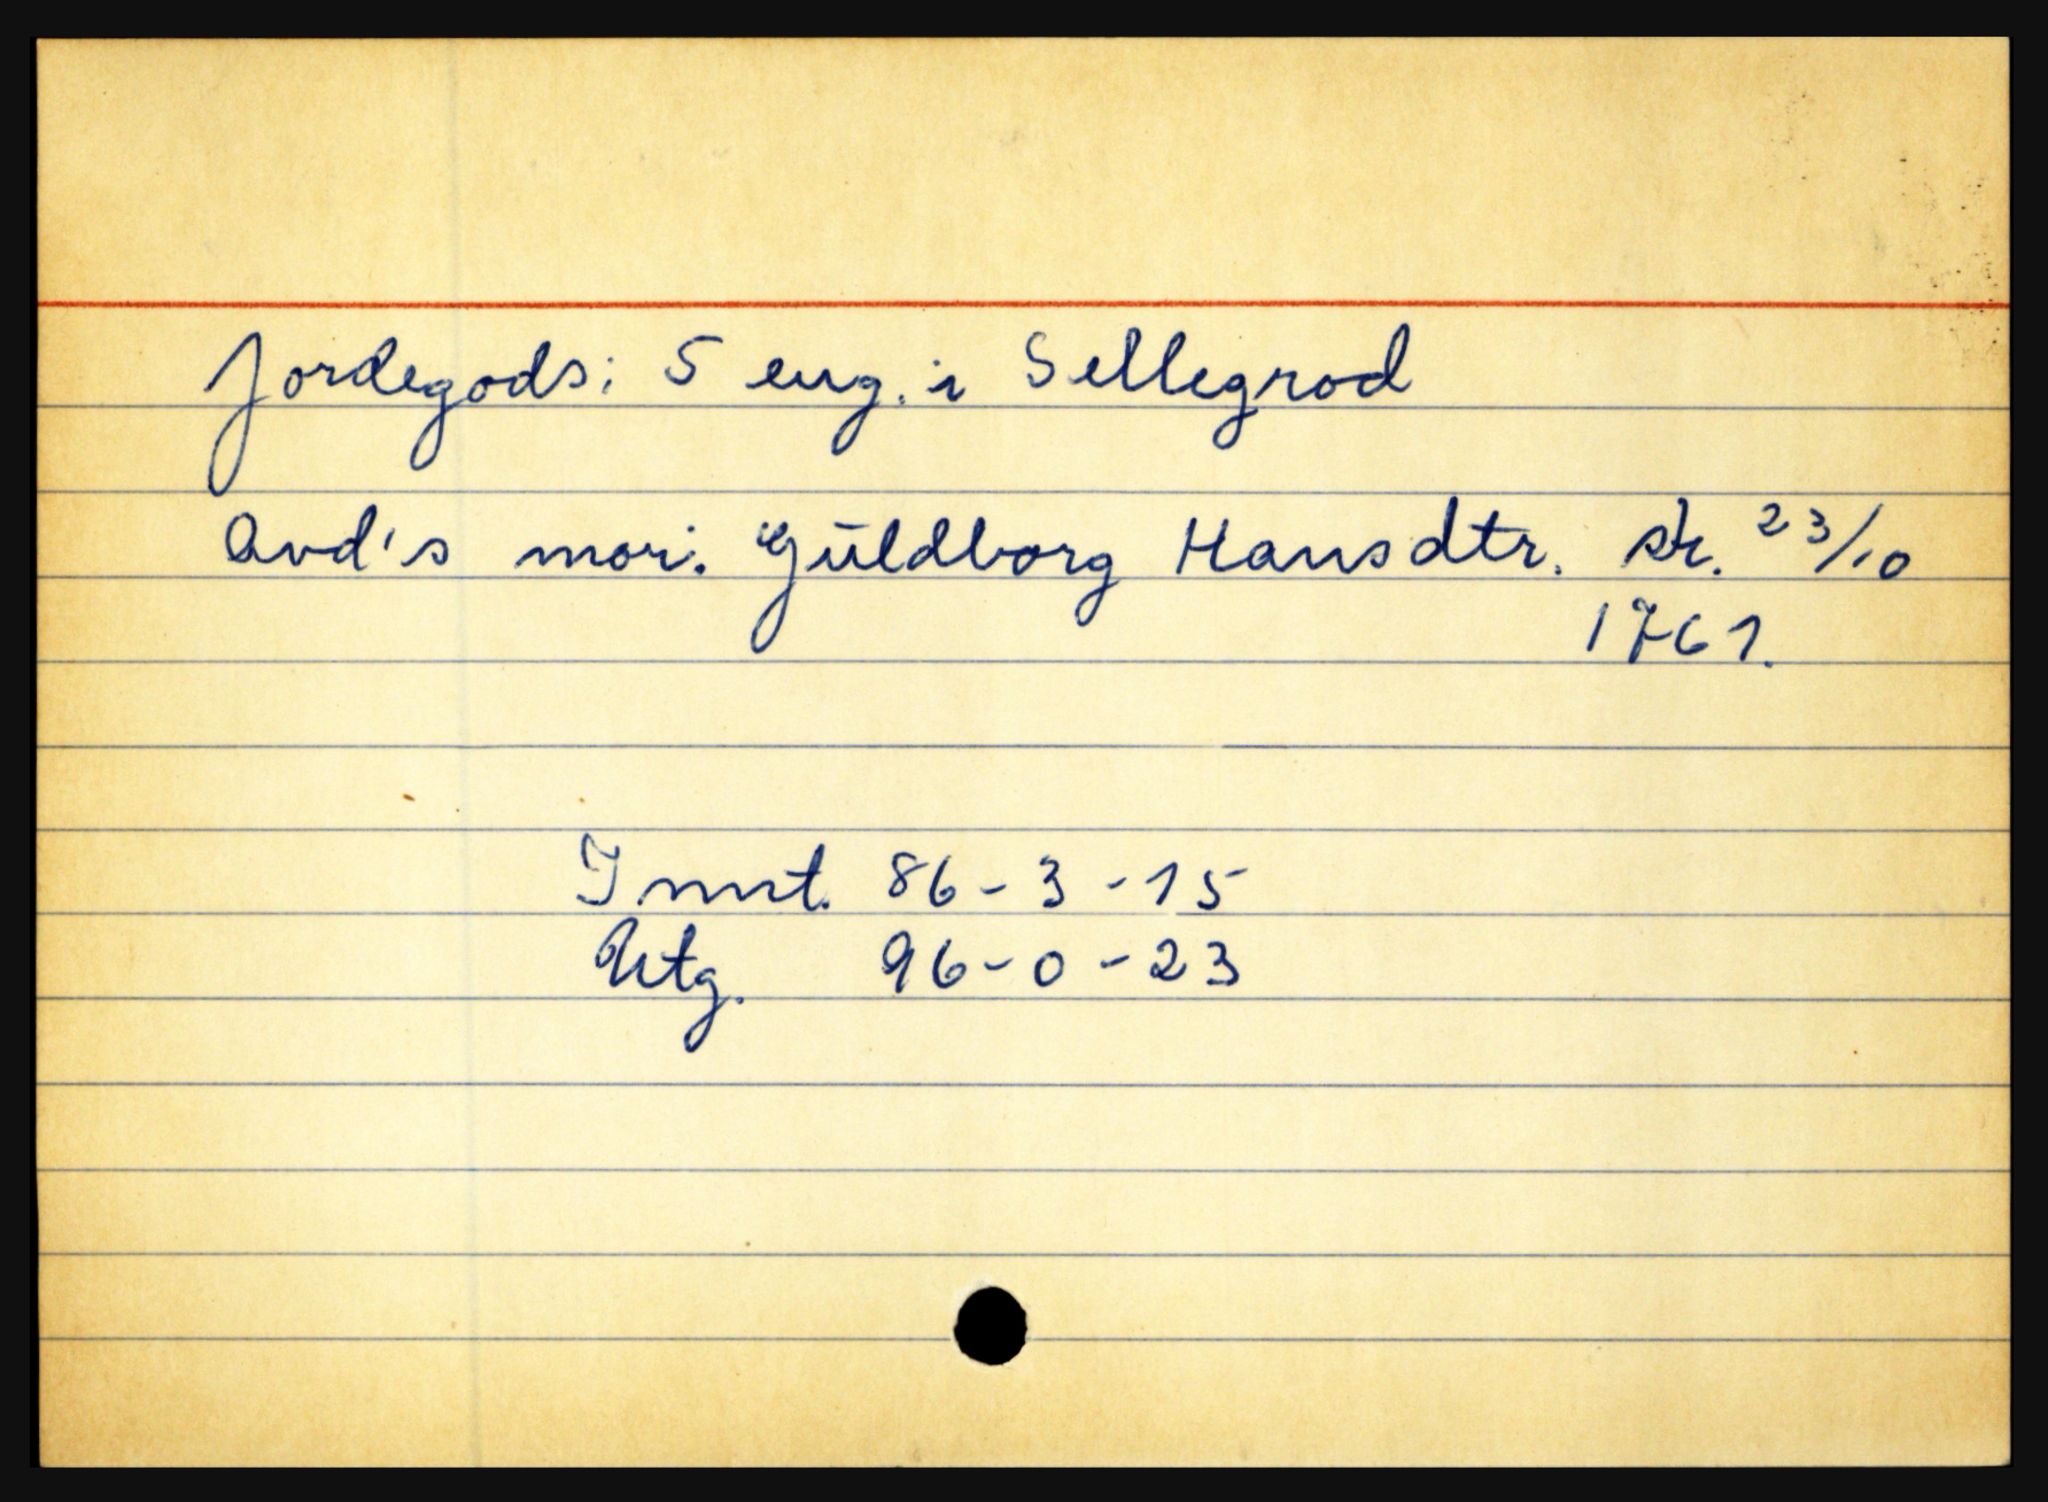 Jordegods: 5 eng. i Sellegrod
Avd's mor: Gŭldborg Hansdtr. sk. 23/10
1761.
Innt. 86-3-15
Utg. 96-0-23